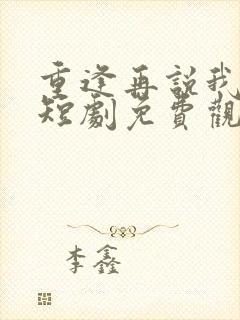 重逢再說我
短劇免費觀
李鑫